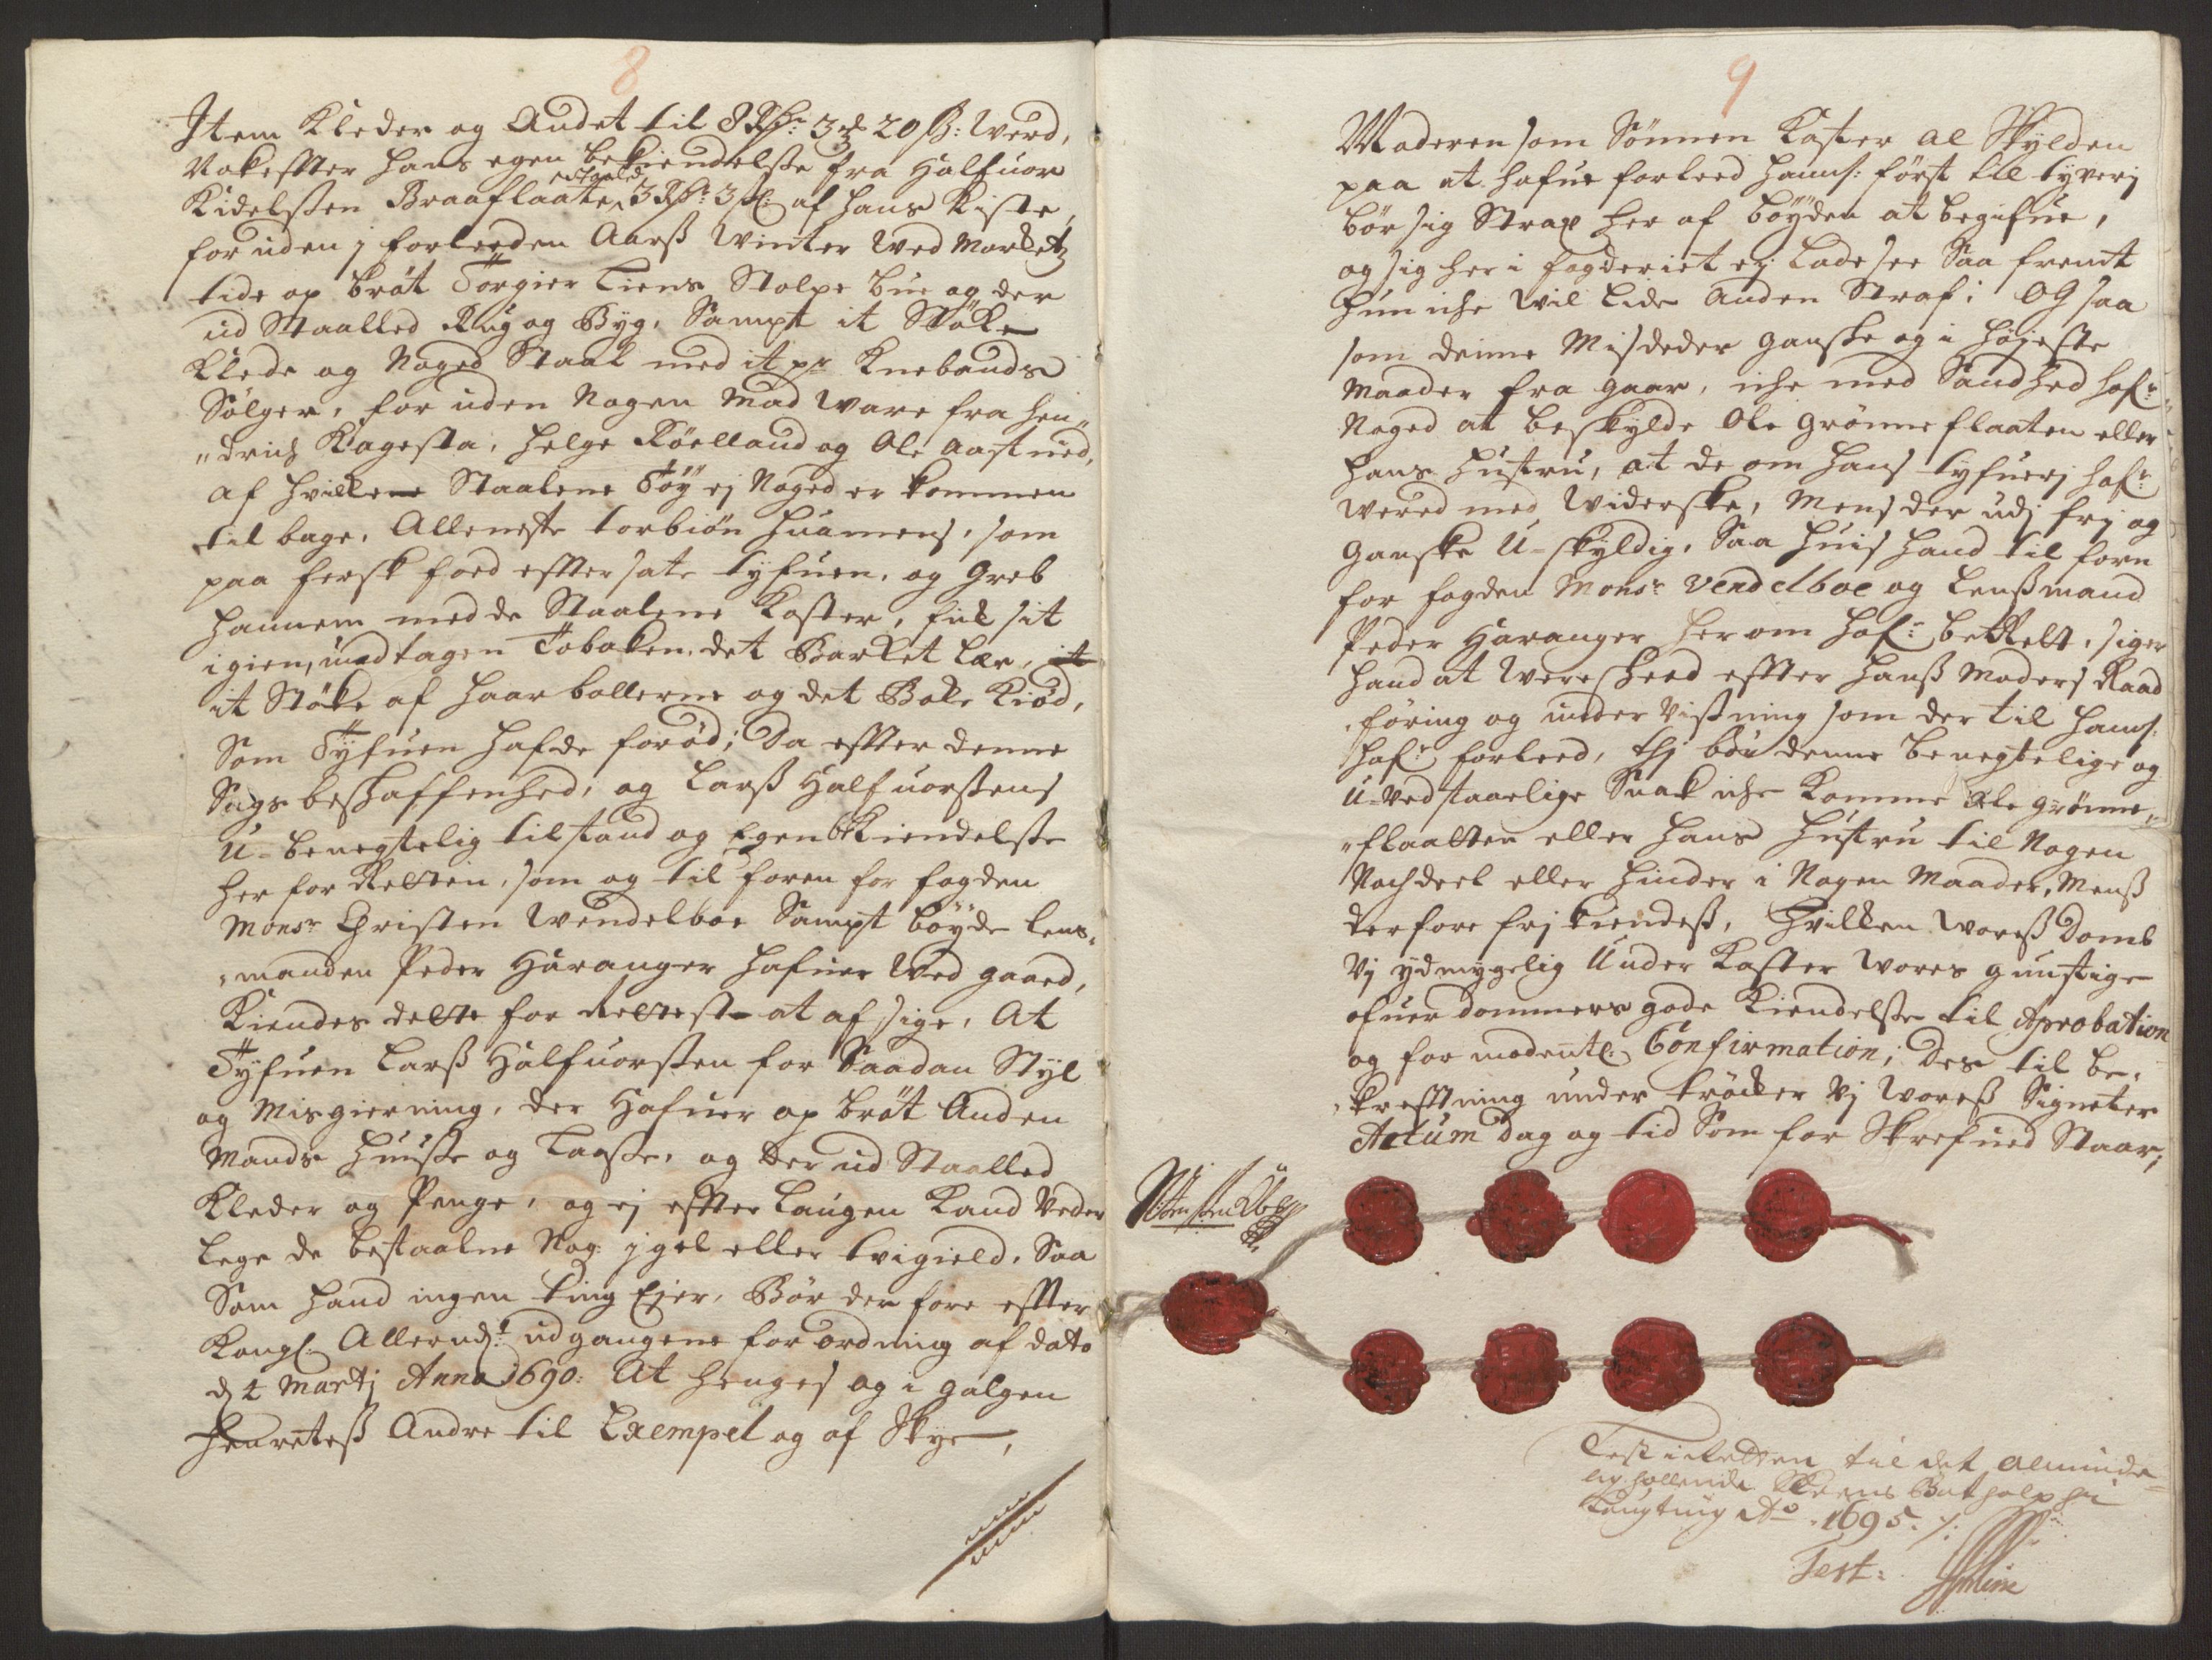 8
Item Kleder og Andet til 8 Rdr: 3 ₰ 20 ß: Werd,
Nok effter hans egen bekiendelsse fra Halfuor
Kidelssen Braaflaaten 3 Rdr: 3 af hans Kiste,
for uden j forleeden Aarß Winter Wed Markets
tide op brøt Torgier Liens Stolpe bue og der
ud Staalled Rug og Byg, Sampt it Støke
Klede og Noged Staal med it pr Knebaands
Sølger, for uden Nogen Mad Ware fra Hen„
„drich Kagesta, Helge Røelland og Ole Aastued,
af hvilkene Staalene Tøy ej Noged er kommen
til bage, Alleneste torbiøn Huamens, som
paa fersk foed effter satte tyfuen, og Greb
hannem med de Staalene Koster, fik sit
igien, undtagen Tobaken, det Barket Lær,
it Støke af Haar bollerne og det Bake Kiød,
Som Tyfuen hafde forød; Da effter denne
Sags beskaffenhed, og Larß Halfuorsens
U-benegtelig tilstand og Egen bekiendelsse
her for Retten, som og til foren for fogden
Monsr Christen Wendelboe Sampt bøyde lens„
„manden Peder Haranger hafuer Wed gaaed,
Kiendes dette for Rettest at afsige, At
Tyfuen Larß Halfuorssen for Saadan Styl
og Misgierning, der Hafuer op brøt Anden
Mands Huusse og Laasse, og der ud Staalled
Kleder og Penge, og ej effter Laugen Kand Veder
lege de bestaalne Nog jgel eller tvigield, Saa
Som hand ingen ting Ejer, Bør der fore effter
Kongl: Allernds: udgangene forordning af dato
d 4 Martj Anno 1690: At henges og i galgen
henretteß Andre til Exempel og af Skye,
9
Moderen som Sønnen Kaster al Skylden
paa at hafue forleed Hans: først til tyverj
bør sig Strax her af bøyden at begifue,
og sig her i fogderiet ej lade see Saa fremt
hun iche Wil lide Anden Straf; OG saa
som denne Misdeder ganske og i høyeste
Maader fra gaar, iche med Sandhed hafr
Noged at beskylde Ole Grønneflaaten eller
hans Hustru, at de om hans tyfuerj hafr
Wered med Widerske, Mens der udj frj og
Ganske U-skyldig, Saa huis hand til forn
for fogden Monsr Vendelboe og Lenßmand
Peder Haranger her om hafr bektelt, siger
hand at Were skeed effter hanß Moders Raad
føring og under Vißning som der til Hans:
hafr forleed, thj bør denne benegtelige og
U-Vedstaaelige Snak iche Komme Ole Grønne„
„flaatten eller hans Hustru til Nogen
Nachdeel eller Hinder i Nogen Maader, Menß
derfore frj kiendeß, Hvilken Woreß Domb
Vj ydmygelig Under Kaster Wores gunstige
ofuer dommers gode Kiendelsse til Aprobation
og for modentl: Confirmation; Des til be„
„krefftning under trøcker Vj Woreß Signeter
Actum Dag og tid Som for Skrefued Staar;
Lest i Retten til det Alminde=
lig hollende Skeens Batholphi
Laugting Ao 1695. /:
Test: